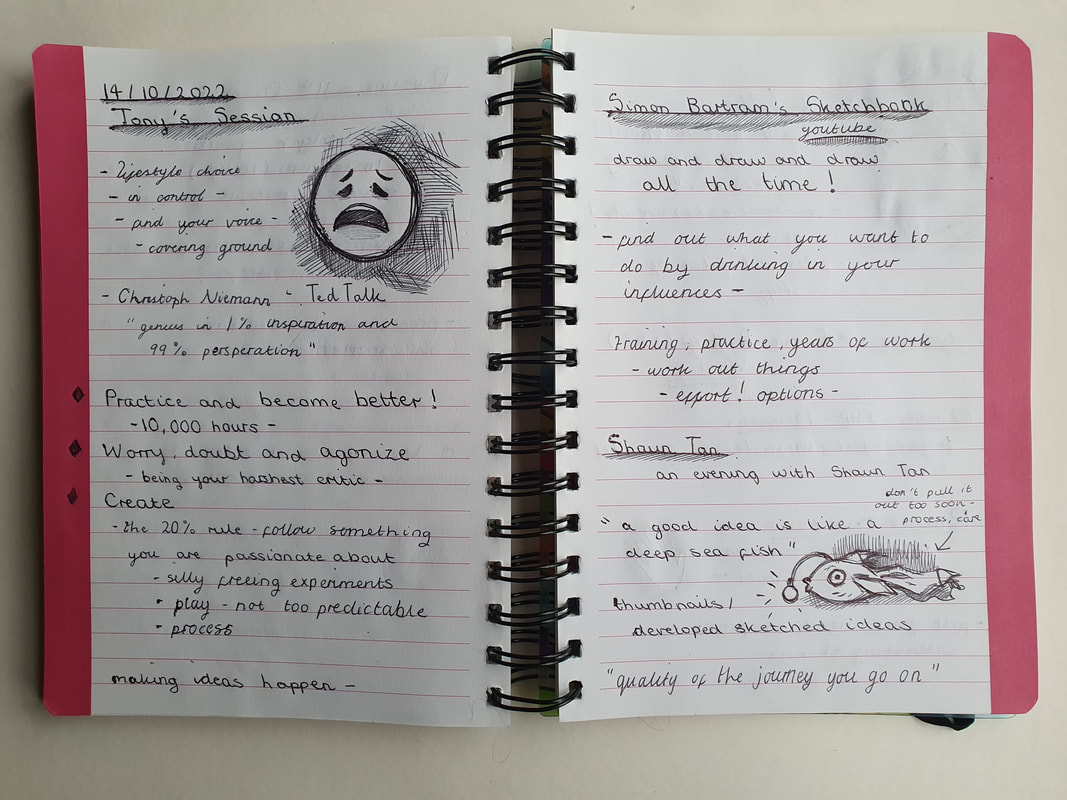 14/10/2022
Tony's Session
- Lifestyle choice
- in control -
- find your voice -
- covering ground
- Christoph Niemann - Ted Talk
"genius in 1% inspiration and
99% persperation"
Practice and become better!
- 10,000 hours -
Worry, doubt and agonize
- being your harshest critic -
Create
- the 20% rule - follow something
you are passionate about
- silly freeing experiments
- play - not too predictable
- process
making ideas happen -
Simon Bartram's Sketchbook
youtube
draw and draw and draw
all the time!
- find out what you want to
do by drinking in your
influences -
Training, practice, years of work
- work out things
- effort! options -
Shaun Tan
an evening with Shaun Tan
don't pull it
out too soon -
process, care
"a good idea is like a
deep sea fish"
thumbnails/
developed sketched ideas
"quality of the journey you go on"